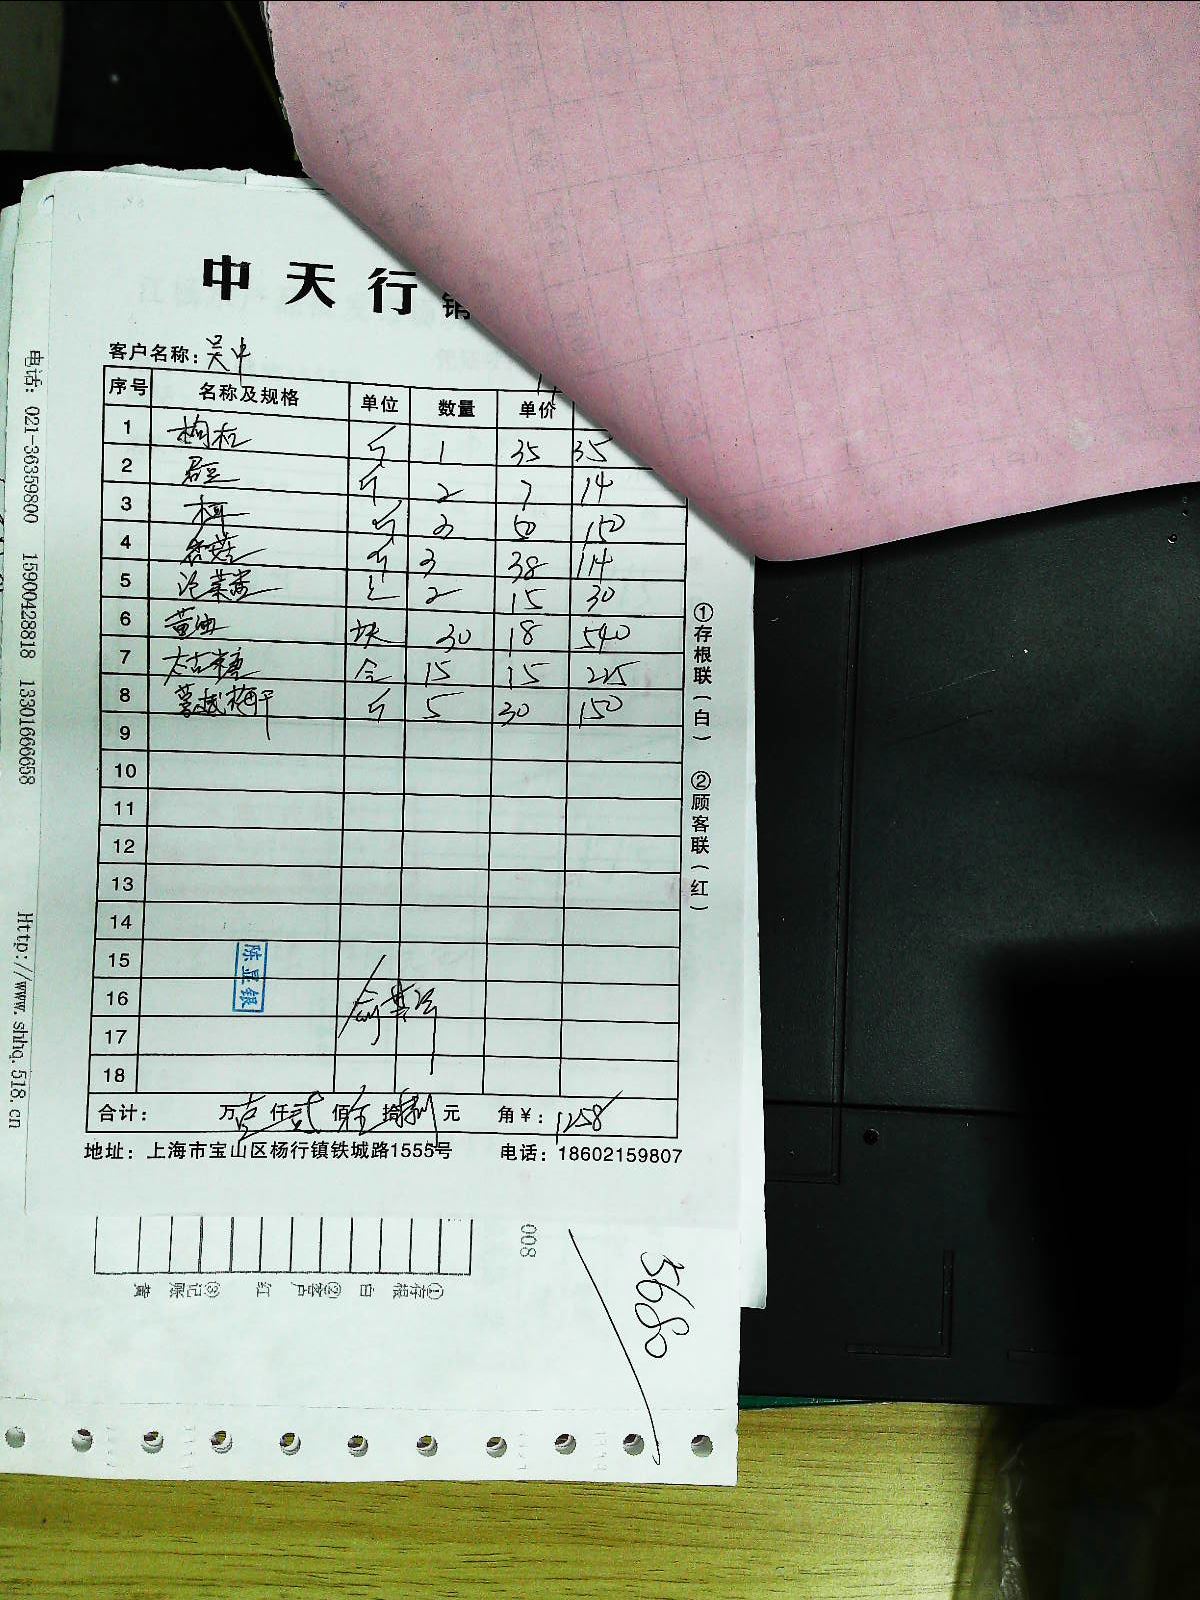 中天行 销
客户名称：吴中
序号 名称及规格 单位 数量 单价
1 枸杞 斤 1 35 35
2 斤 2 7 14
3 木耳 斤 3 50 150
4 香菇 斤 3 38 114
5 泡菜 2 15 30
6 黄油 块 30 18 540
7 太古糖 合 15 15 225
8 蔓越梅干 斤 5 30 150
9
10
11
12
13
14
15
16
17
18
陈显银
合计： 万壹仟贰佰伍拾捌元 角￥：1258
地址：上海市宝山区杨行镇铁城路1555号 电话：18602159807
①存根联（白） ②顾客联（红）
电话：021-36359800 15900428818 13301666658 Http://www.shhq.518.cn
008
①存根 白 ②客户 红 ③记账 黄
5680